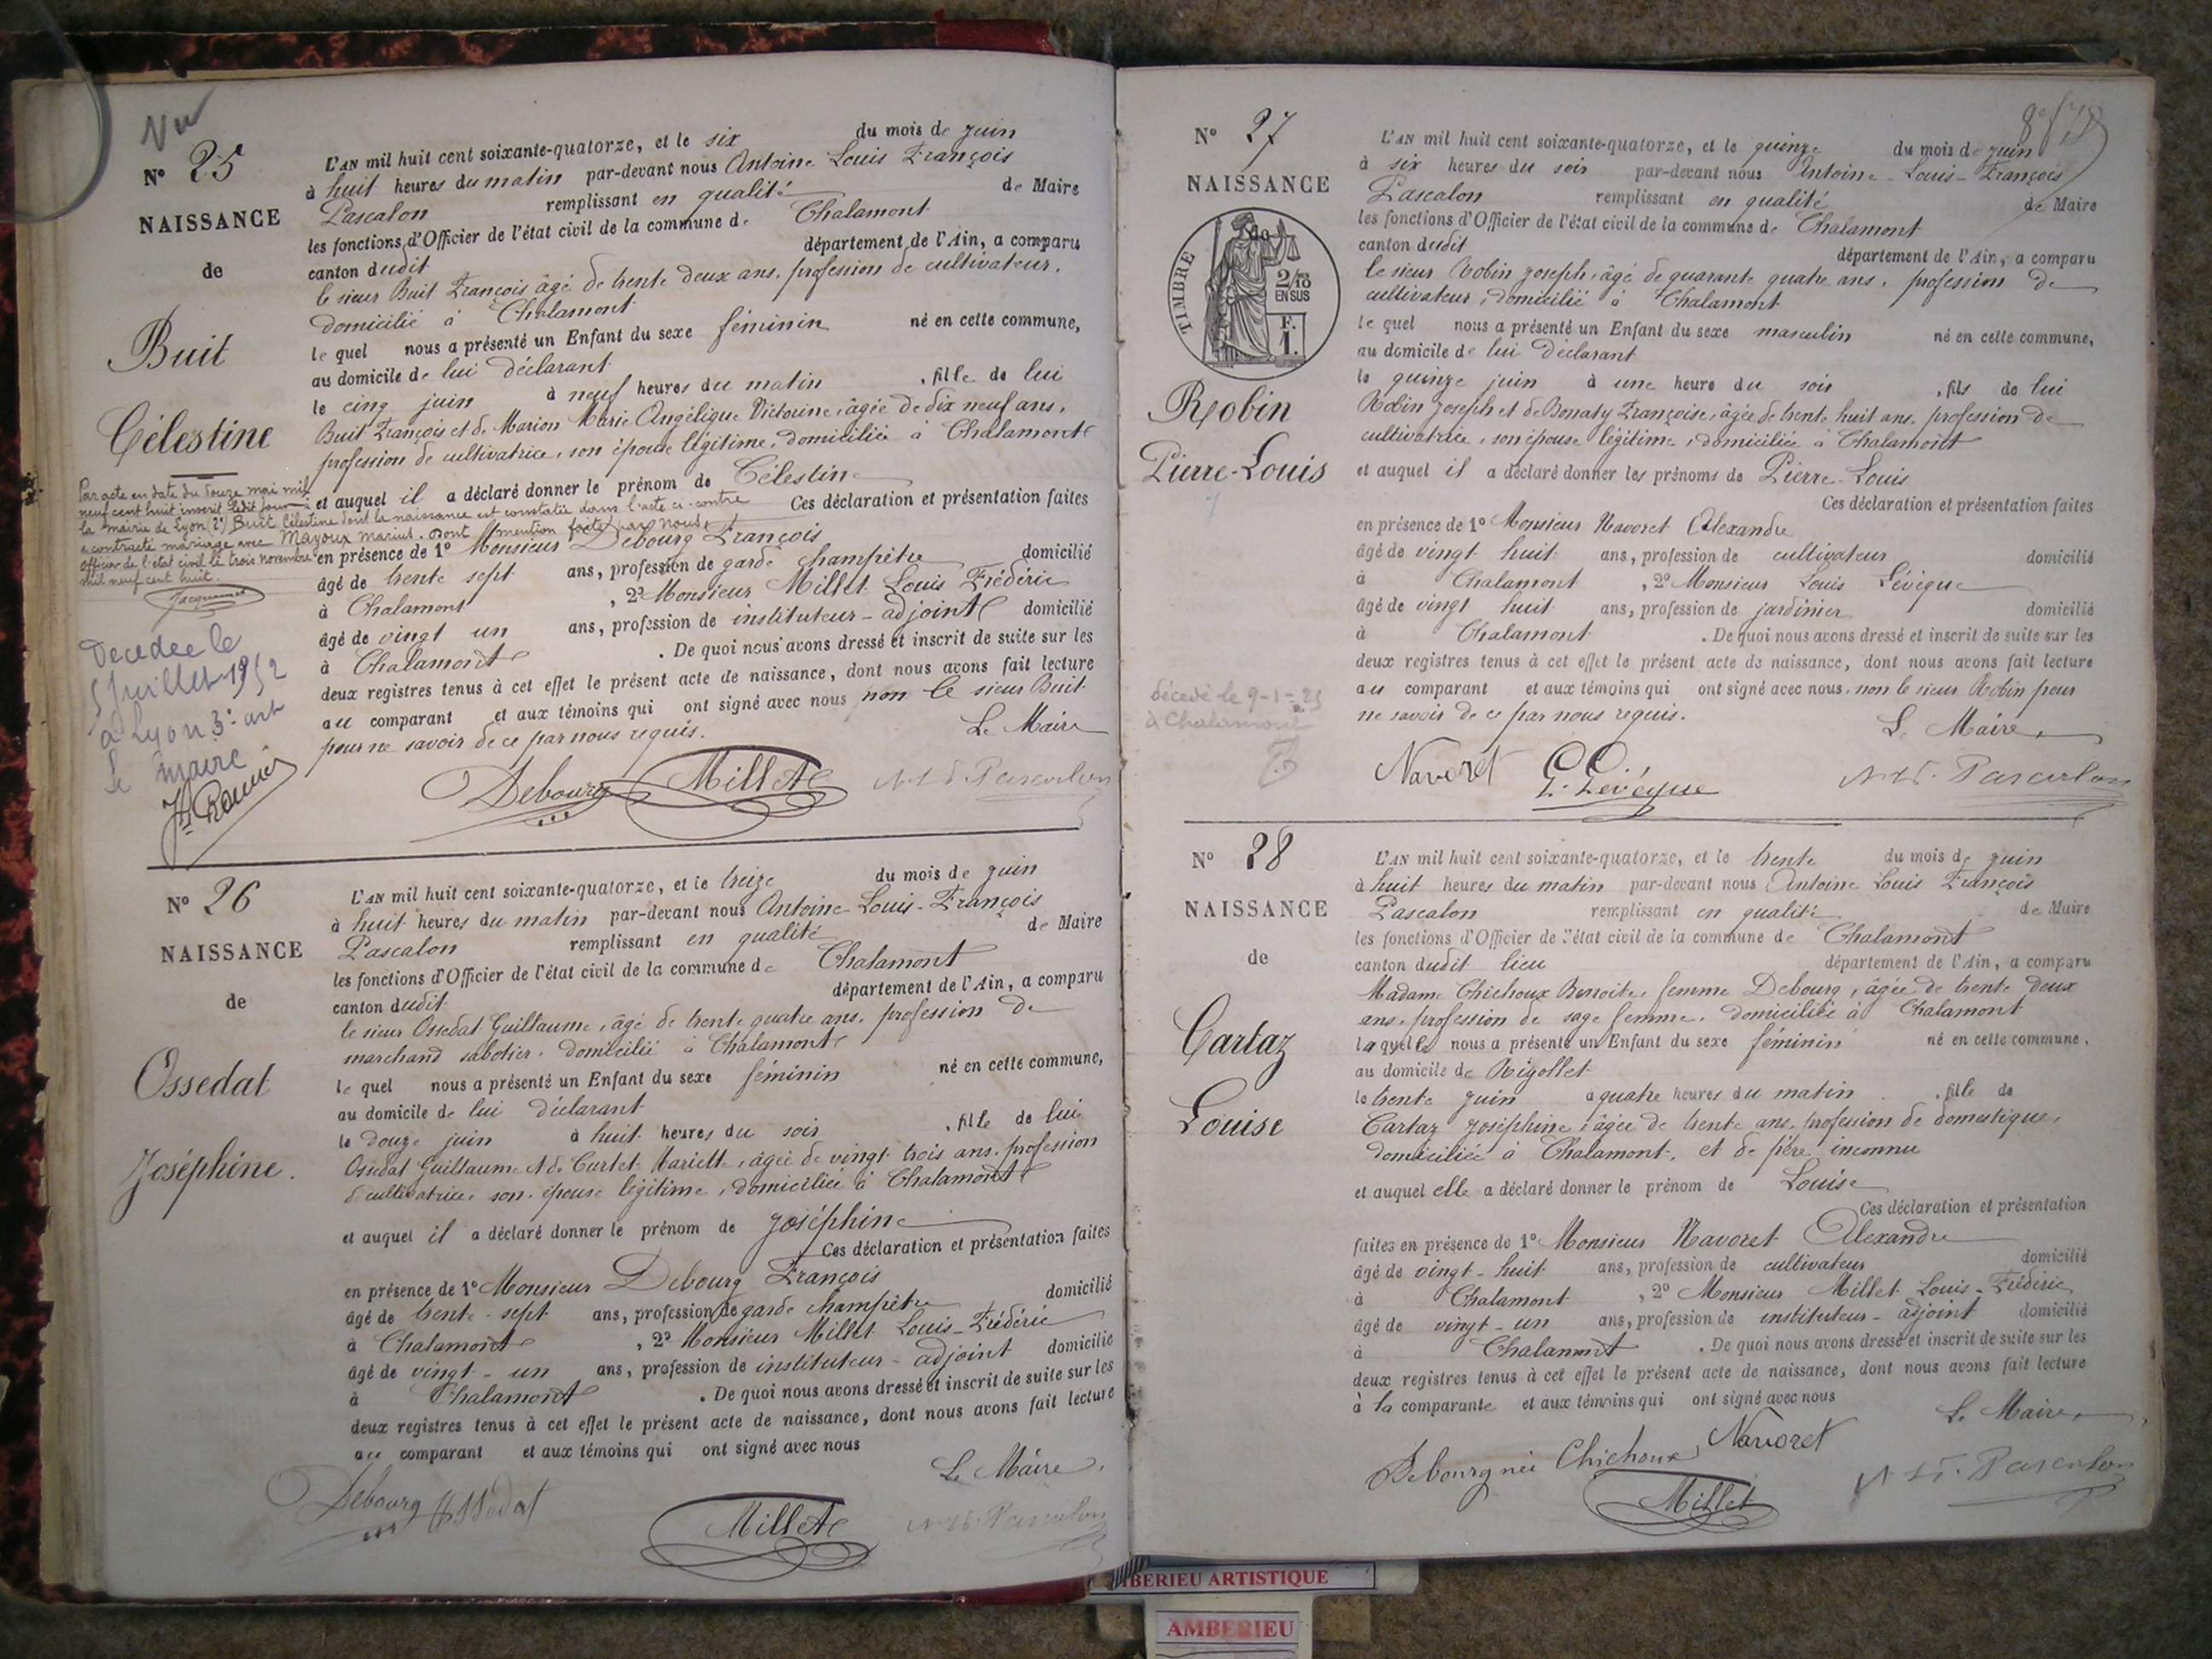 Vu
N° 25
NAISSANCE
de
Buit
Célestine
Par acte en date du douze mai mil
neuf cent huit inscrit ledit jour à
la mairie de Lyon (2e) Buit Célestine dont la naissance est constatée dans l'acte ci-contre
a contracté mariage avec Mazoux Marius. Dont mention faite par nous,
officier de l'état civil le trois novembre
mil neuf cent huit.
Décédée le
5 Juillet 1952
à Lyon 3e art
le maire
L'AN mil huit cent soixante-quatorze, et le six du mois de juin
à huit heures du matin par-devant nous Antoine Louis François
Pascalon remplissant en qualité de Maire
les fonctions d'Officier de l'état civil de la commune de Chalamont
canton dudit département de l'Ain, a comparu
le sieur Buit François âgé de trente deux ans, profession de cultivateur,
domicilié à Chalamont
le quel nous a présenté un Enfant du sexe féminin né en cette commune,
au domicile de lui déclarant
le cinq juin à neuf heures du matin , fille de lui
Buit François et de Marion Marie Angélique Victorine, âgée de dix neuf ans,
profession de cultivatrice, son épouse légitime, domiciliée à Chalamont
et auquel il a déclaré donner le prénom de Célestine
Ces déclaration et présentation faites
en présence de 1° Monsieur Debourg François
âgé de trente sept ans, profession de garde champêtre domicilié
à Chalamont , 2° Monsieur Millet Louis Frédéric
âgé de vingt un ans, profession de instituteur-adjoint domicilié
à Chalamont . De quoi nous avons dressé et inscrit de suite sur les
deux registres tenus à cet effet le présent acte de naissance, dont nous avons fait lecture
au comparant et aux témoins qui ont signé avec nous non le sieur Buit
pour ne savoir de ce par nous requis.
Le Maire
Debourg Millet Pascalon
N° 26
NAISSANCE
de
Ossedat
Joséphine.
L'AN mil huit cent soixante-quatorze, et le treize du mois de juin
à huit heures du matin par-devant nous Antoine-Louis-François
Pascalon remplissant en qualité de Maire
les fonctions d'Officier de l'état civil de la commune de Chalamont
canton dudit département de l'Ain, a comparu
le sieur Ossedat Guillaume, âgé de trente quatre ans, profession de
marchand sabotier, domicilié à Chalamont
le quel nous a présenté un Enfant du sexe féminin né en cette commune,
au domicile de lui déclarant
le douze juin à huit heures du soir , fille de lui
Ossedat Guillaume et de Curtet Mariette, âgée de vingt trois ans, profession
de cultivatrice, son épouse légitime, domiciliée à Chalamont
et auquel il a déclaré donner le prénom de Joséphine
Ces déclaration et présentation faites
en présence de 1° Monsieur Debourg François
âgé de trente-sept ans, profession de garde champêtre domicilié
à Chalamont , 2° Monsieur Millet Louis-Frédéric
âgé de vingt-un ans, profession de instituteur-adjoint domicilié
à Chalamont . De quoi nous avons dressé et inscrit de suite sur les
deux registres tenus à cet effet le présent acte de naissance, dont nous avons fait lecture
au comparant et aux témoins qui ont signé avec nous
Le Maire,
Debourg Ossedat Millet Pascalon
N° 27
NAISSANCE
de
TIMBRE
2/10
EN SUS
F.
1.
Robin
Pierre-Louis
décédé le 9-1-25
à Chalamont
L'AN mil huit cent soixante-quatorze, et le quinze du mois de juin
à six heures du soir par-devant nous Antoine-Louis-François
Pascalon remplissant en qualité de Maire
les fonctions d'Officier de l'état civil de la commune de Chalamont
canton dudit département de l'Ain, a comparu
le sieur Robin Joseph, âgé de quarante quatre ans, profession de
cultivateur, domicilié à Chalamont
le quel nous a présenté un Enfant du sexe masculin né en cette commune,
au domicile de lui déclarant
le quinze juin à une heure du soir , fils de lui
Robin Joseph et de Bonaty Françoise, âgée de trente huit ans, profession de
cultivatrice, son épouse légitime, domiciliée à Chalamont
et auquel il a déclaré donner les prénoms de Pierre-Louis
Ces déclaration et présentation faites
en présence de 1° Monsieur Navoret Alexandre
âgé de vingt huit ans, profession de cultivateur domicilié
à Chalamont , 2° Monsieur Louis Lévêque
âgé de vingt huit ans, profession de jardinier domicilié
à Chalamont . De quoi nous avons dressé et inscrit de suite sur les
deux registres tenus à cet effet le présent acte de naissance, dont nous avons fait lecture
au comparant et aux témoins qui ont signé avec nous, non le sieur Robin pour
ne savoir de ce par nous requis.
Le Maire,
Navoret L. Lévêque Pascalon
N° 28
NAISSANCE
de
Cartaz
Louise
L'AN mil huit cent soixante-quatorze, et le trente du mois de juin
à huit heures du matin par-devant nous Antoine Louis François
Pascalon remplissant en qualité de Maire
les fonctions d'Officier de l'état civil de la commune de Chalamont
canton dudit lieu département de l'Ain, a comparu
Madame Chichoux Benoite, femme Debourg, âgée de trente deux
ans, profession de sage femme, domiciliée à Chalamont
laquelle nous a présenté un Enfant du sexe féminin né en cette commune,
au domicile de Rigollet
le trente juin à quatre heures du matin , fille de
Cartaz Joséphine, âgée de trente ans, profession de domestique,
domiciliée à Chalamont, et de père inconnu
et auquel elle a déclaré donner le prénom de Louise
Ces déclaration et présentation
faites en présence de 1° Monsieur Navoret Alexandre
âgé de vingt-huit ans, profession de cultivateur domicilié
à Chalamont , 2° Monsieur Millet Louis-Frédéric
âgé de vingt-un ans, profession de instituteur-adjoint domicilié
à Chalamont . De quoi nous avons dressé et inscrit de suite sur les
deux registres tenus à cet effet le présent acte de naissance, dont nous avons fait lecture
à la comparante et aux témoins qui ont signé avec nous
Le Maire,
Debourg née Chichoux Navoret
Millet Pascalon
BERIEU ARTISTIQUE
AMBERIEU